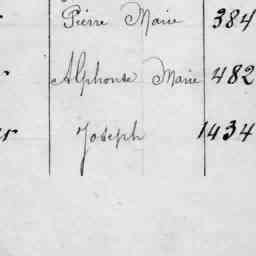 Pierre Marie 384
Alphonse Marie 482
Joseph 1434